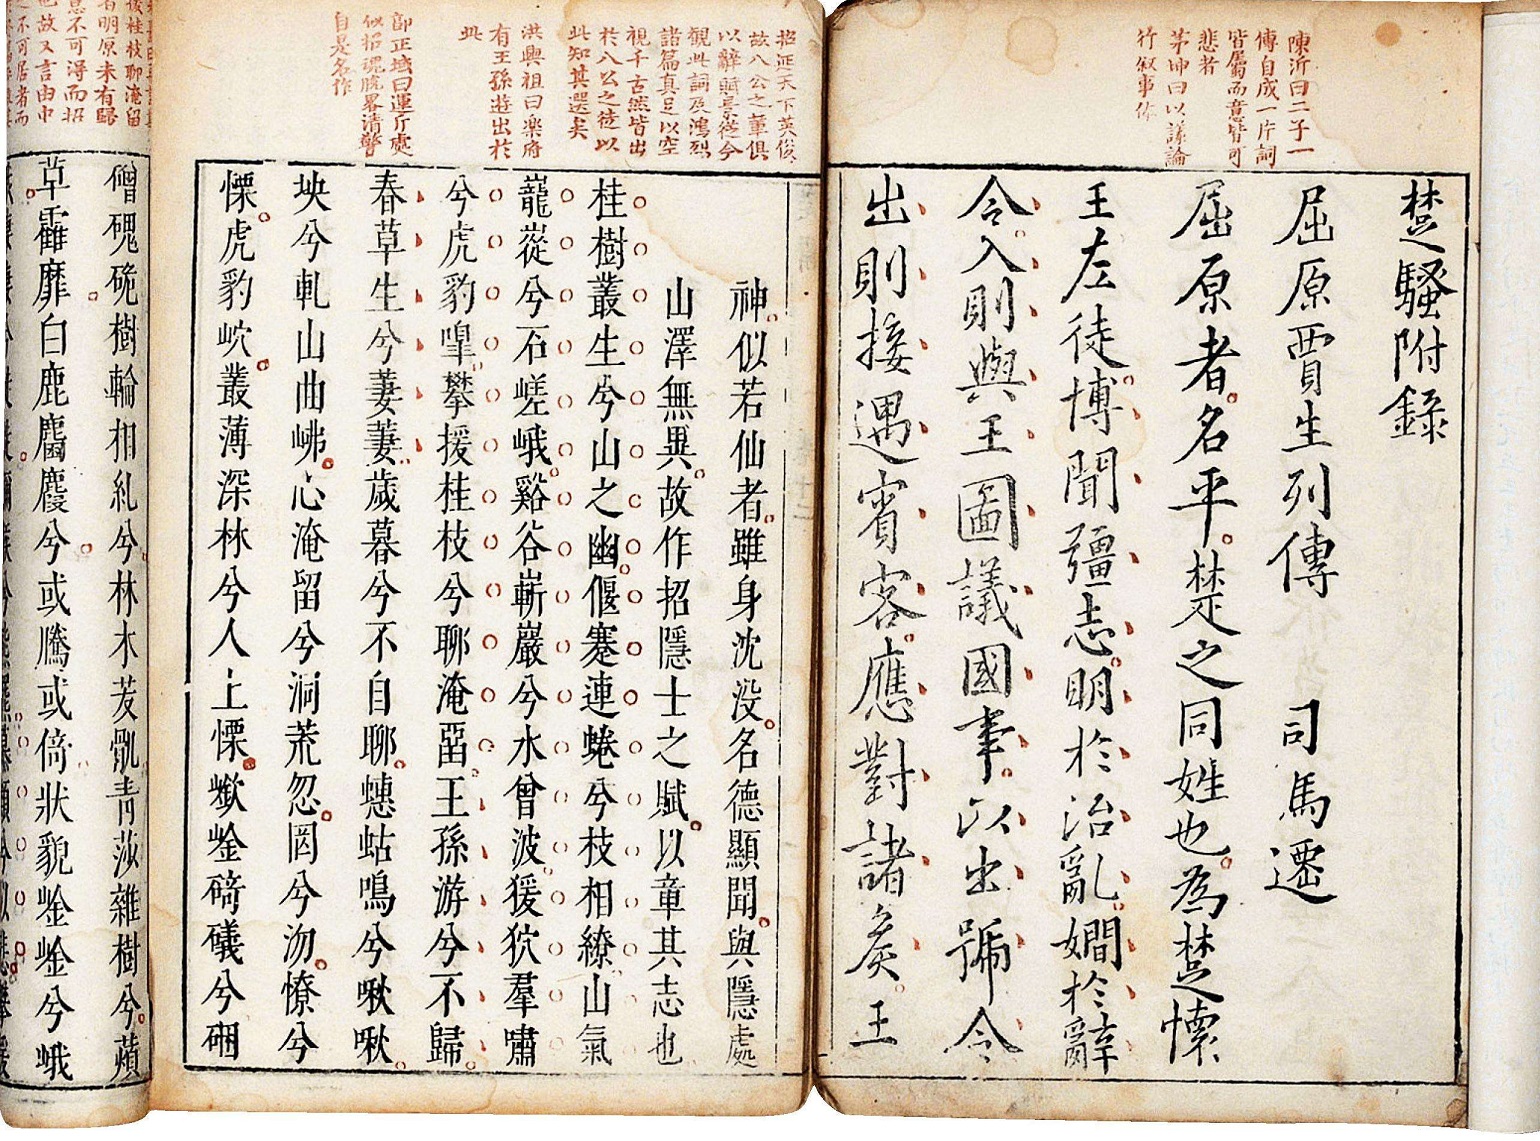 陳沂曰二子一
傳自成一片詞
皆屬而意皆可
悲者
茅坤曰以議論
行叙事体
楚騷附錄
屈原賈生列傳　司馬遷
屈原者名平楚之同姓也為楚懷
王左徒博聞彊志明於治亂嫺於辭
令入則與王圖議國事以出號令
出則接遇賓客應對諸矦王
招延天下英俊
故八公之輩俱
以辭賦景從今
觀此詞及鴻烈
諸篇真足以空
視千古然皆出
於八公之徒以
此知其選矣
洪興祖曰楽府
有王孫遊出於
此
郭正域曰運斤處
似招魂脫畧清警
自是名作
神似若仙者雖身沈没名德顯聞與隱處
山澤無異故作招隱士之賦以章其志也
桂樹叢生兮山之幽偃蹇連蜷兮枝相繚山氣
巃嵷兮石嵯峨谿谷嶄巖兮水曾波猨狖羣嘯
兮虎豹嘷攀援桂枝兮聊淹畱王孫游兮不歸
春草生兮萋萋歲暮兮不自聊蟪蛄鳴兮啾啾
坱兮軋山曲岪心淹留兮洞荒忽罔兮沕憭兮
慄虎豹岤叢薄深林兮人上慄嶔崟碕礒兮硱
磳磈硊樹輪相糺兮林木茇骩青莎雜樹兮薠
草靃靡白鹿麏麚兮或騰或倚狀貌崟崟兮峨